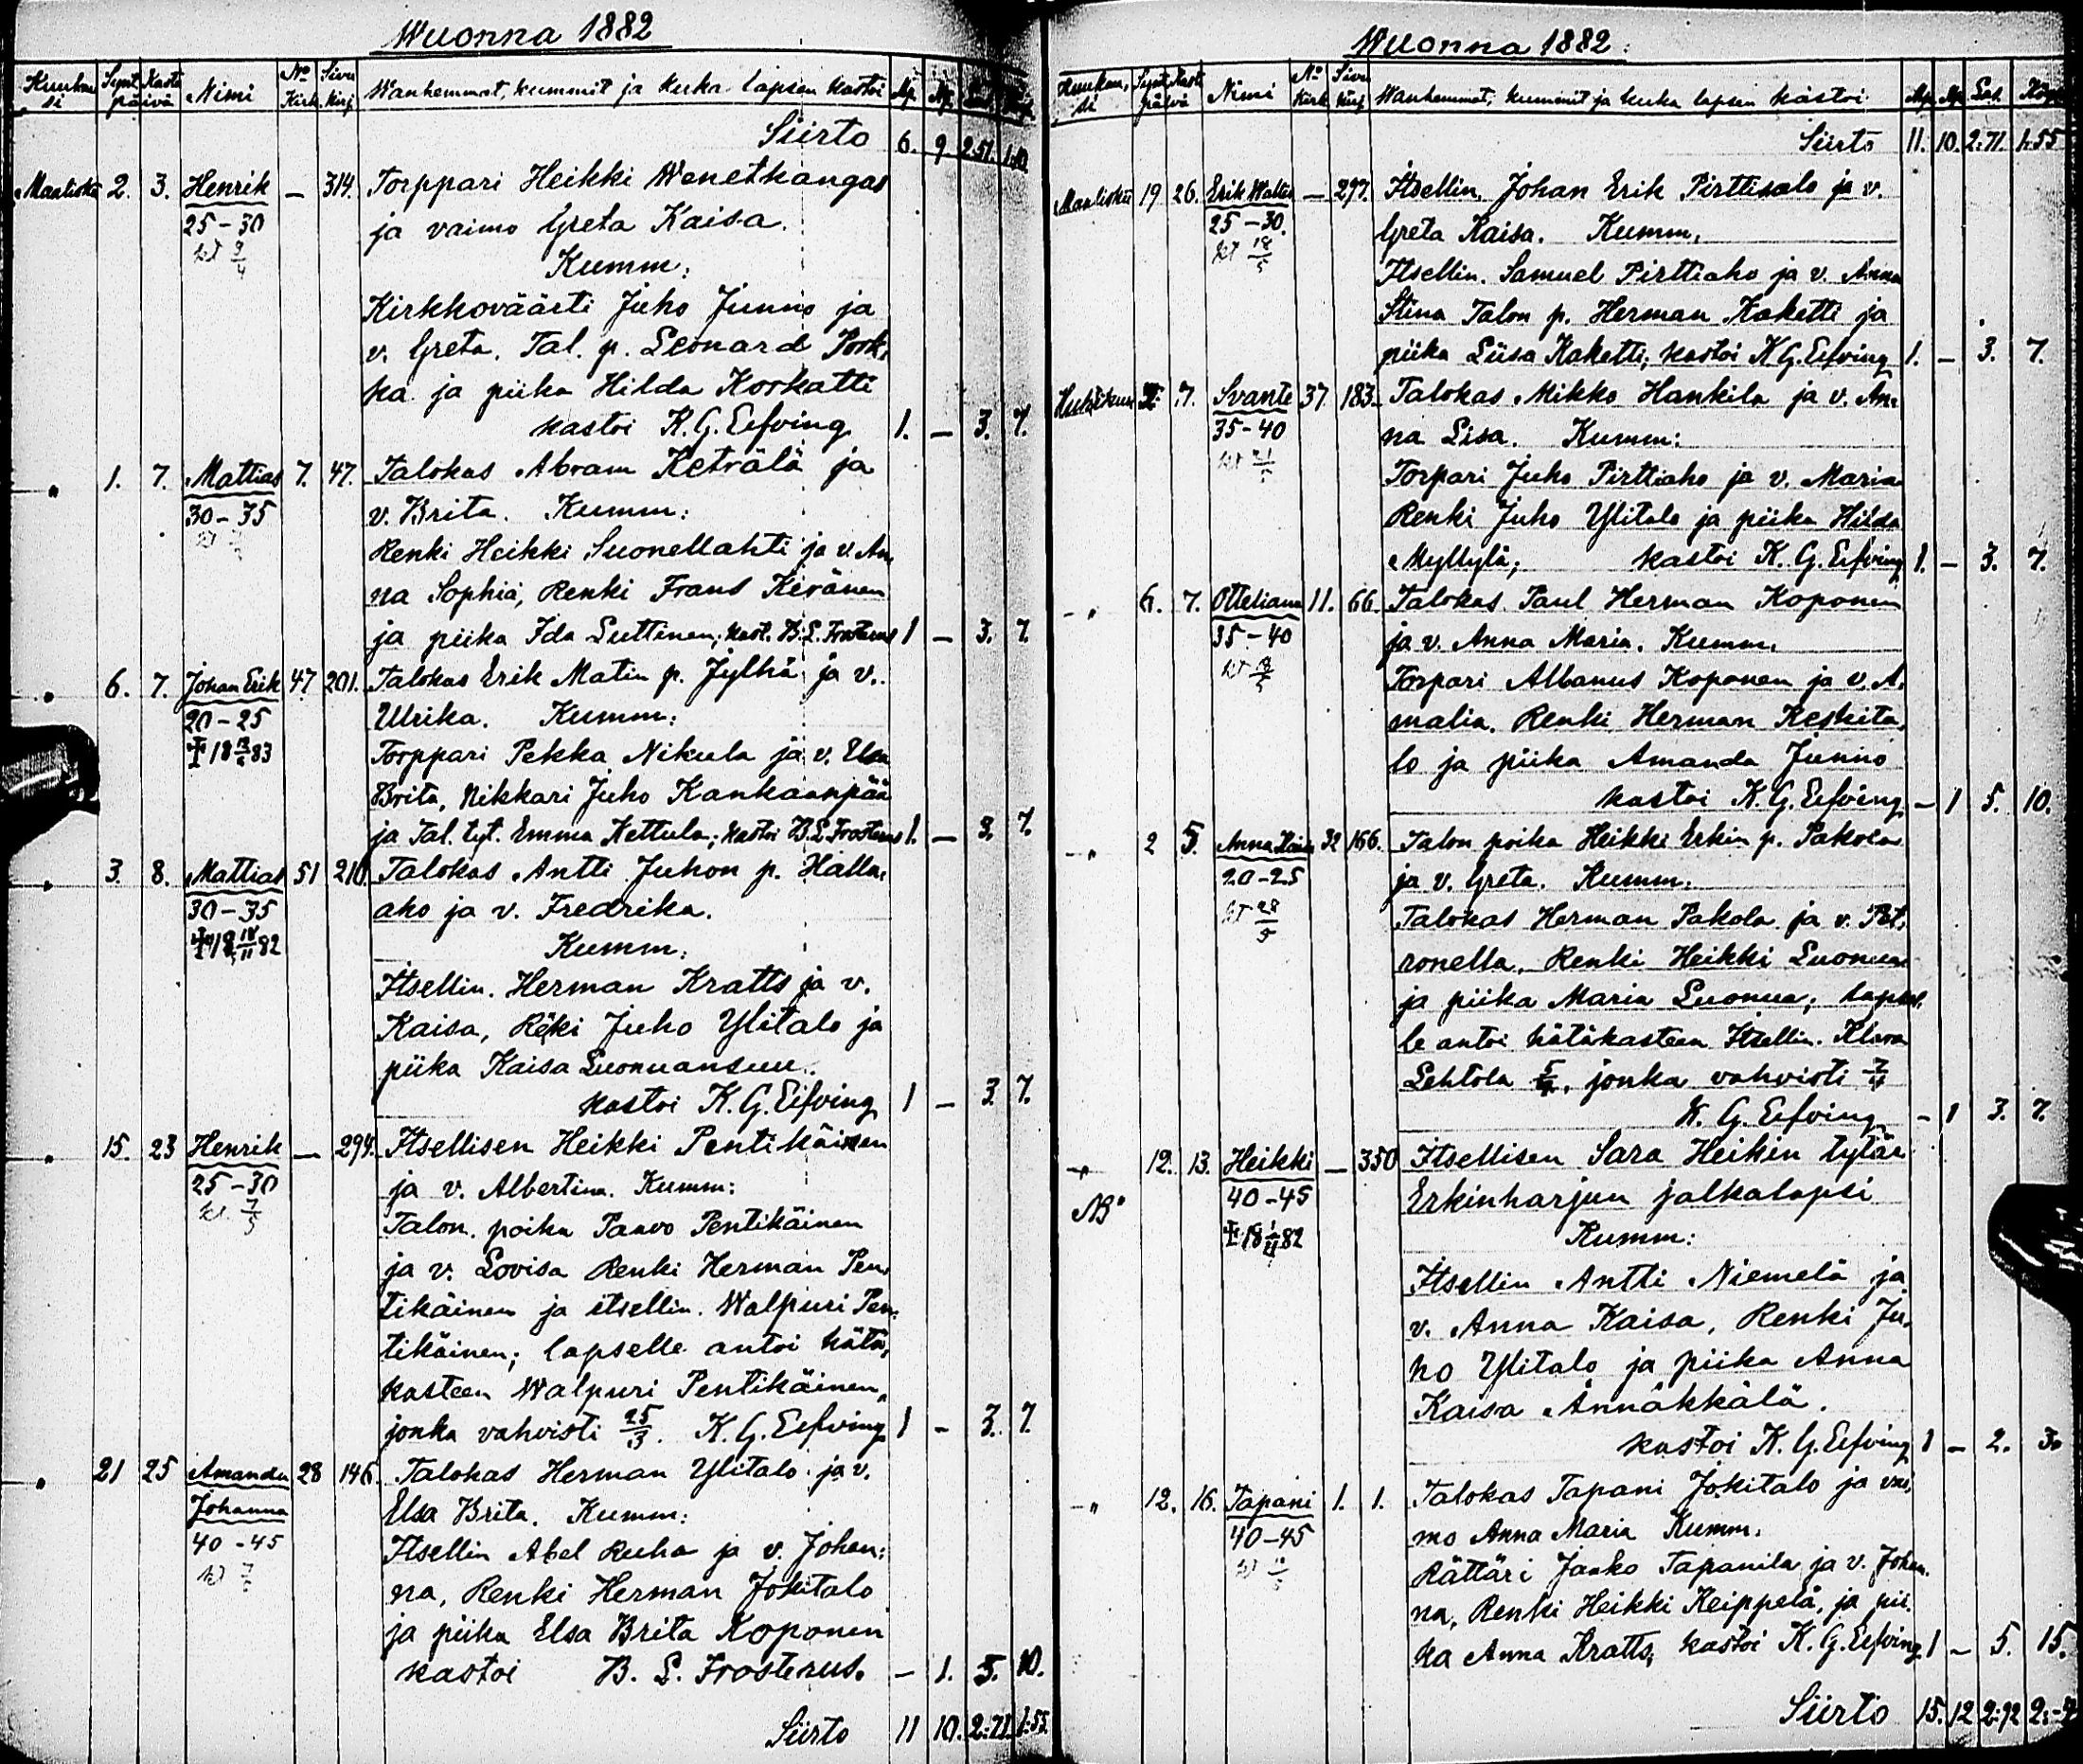 Wuonna 1882
Kuukausi Synt. Kaste päivä Nimi No Kirk. Sivu kirj Wanhemmat, kummit ja kuka lapsen kastoi Mp. Np.
Siirto 6. 9. 2:51. 1:10
Maalisk. 2. 3. Henrik — 314. Torppari Heikki Wenetkangas
25-30 ja vaimo Greta Kaisa.
Kumm:
Kirkkoväärti Juho Junno ja
v. Greta. Tal. p. Leonard Pork,
ka ja piika Hilda Korkatti
kastoi K. G. Eefving 1. — 3. 7.
" 1. 7. Mattias 7. 47. Talokas Abram Keträlä ja
30-35 v. Brita. Kumm:
Renki Heikki Suonellahti ja v. An
na Sophia, Renki Frans Keränen
ja piika Ida Luttinen; kast. B. L. Frosterus 1 — 3. 7.
" 6. 7. Johan Erik 47 201. Talokas Erik Matin p. Jylhä ja v.
20-25 Ulrika. Kumm:
Torppari Pekka Nikula ja v. Elsa
Brita, Nikkari Juho Kankaanpää
ja Tal. tyt. Emma Kettula; kastoi B. L. Frosterus 1. — 3. 7.
" 3. 8. Mattias 51 210. Talokas Antti Juhon p. Halla,
30-35 aho ja v. Fredrika.
18 18/11 82 Kumm:
Itsellin. Herman Kratts ja v.
Kaisa, Reki Juho Ylitalo ja
piika Kaisa Luonuansuu.
kastoi K. G. Eefving 1 — 3. 7.
" 15. 23 Henrik — 294. Itsellisen Heikki Pentikäisen
25-30 ja v. Albertina. Kumm:
Talon. poika Paavo Pentikäinen
ja v. Lovisa Renki Herman Pen,
tikäinen ja itsellin. Walpuri Pen,
tikäinen; lapselle antoi hätä,
kasteen Walpuri Pentikäinen,
jonka vahvisti 25/3. K. G. Eefving 1 - 3. 7.
" 21 25 Amanda 28 146. Talokas Herman Ylitalo ja v.
Johanna Elsa Brita. Kumm:
40-45 Itsellin Abel Ruha ja v. Johan:
na, Renki Herman Jokitalo
ja piika Elsa Brita Koponen
kastoi B. L. Frosterus. — 1. 5. 10.
Siirto 11 10. 2:71. 1:55.
Wuonna 1882.
Kuukausi Synt. Kaste päivä Nimi No Kirk Sivu kirj Wanhemmat, kummit ja kuka lapsen kastoi Mp. Np.
Siirto 11. 10. 2:71. 1:55
Maalisk. 19 26. Erik Walter — 297. Itsellin. Johan Erik Pirttisalo ja v.
25-30. Greta Kaisa. Kumm.
Itsellin. Samuel Pirttiaho ja v. Anna
Stina Talon p. Herman Kaketti ja
piika Liisa Kaketti; kastoi K G. Eefving 1. — 3. 7.
7. Svante 37 183. Talokas Mikko Hankila ja v. An:
35-40 na Lisa. Kumm:
Torpari Juho Pirttiaho ja v. Maria
Renki Juho Ylitalo ja piika Hilda
Myllylä; kastoi K. G. Eefving 1. — 3. 7.
" 6. 7. Otteliana 11. 66. Talokas Paul Herman Koponen
35-40 ja v. Anna Maria. Kumm.
Torpari Albanus Koponen ja v. A.
malia. Renki Herman Keskita,
lo ja piika Amanda Junno
kastoi K. G. Eefving — 1 5. 10.
" 2 5. Anna Kaisa 32 166. Talon poika Heikki Erkin p. Pakola
20-25 ja v. Greta. Kumm.
28/5 Talokas Herman Pakola ja v. Pet,
ronella. Renki Heikki Luonua
ja piika Maria Luonua; lapsel,
le antoi hätäkasteen Itsellin. Klara
Lehtola 5/4, jonka vahvisti 7/4
K. G. Eefving - 1 3. 7.
" 12. 13. Heikki — 350 Itsellisen Sara Heikin tytär
NB 40-45 Erkinharjun jalkalapsi
Kumm:
Itsellin Antti Niemelä ja
v. Anna Kaisa, Renki Ju,
ho Ylitalo ja piika Anna
Kaisa Ännäkkälä.
kastoi K. G. Eefving 1 — 2. 3.
" 12. 16. Tapani 1. 1. Talokas Tapani Jokitalo ja vai,
40-45 mo Anna Maria Kumm.
Rättäri Jaako Tapanila ja v. Johan.
na, Renki Heikki Keippelä, ja pii.
ka Anna Kratts; kastoi K. G. Eefving 1 — 5. 15.
Siirto 15. 12 2:92